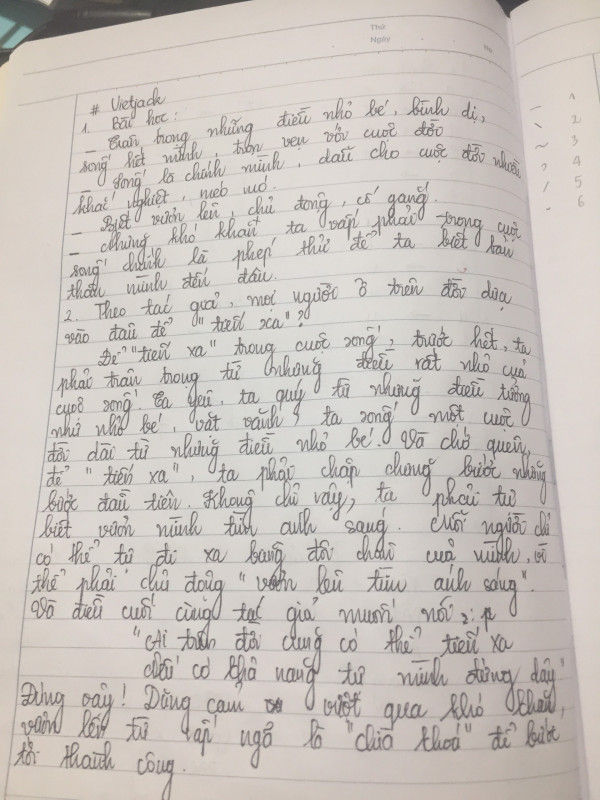 Thứ
Ngày
No
# Vietjack
1. Bài học:
– Trân trọng những điều nhỏ bé, bình dị,
sống hết mình, trọn vẹn với cuộc đời
– Sống là chính mình, dẫu cho cuộc đời nhiều
khắc nghiệt, méo mó.
– Biết vươn lên, chủ động, cố gắng.
– Những khó khăn ta vấp phải trong cuộc
sống chính là phép thử để ta biết bản
thân mình đến đâu.
2. Theo tác giả, mọi người ở trên đời dựa
vào đâu để "tiến xa"?
Để "tiến xa" trong cuộc sống, trước hết, ta
phải trân trọng từ những điều rất nhỏ của
cuộc sống. Ta yêu, ta quý từ những điều tưởng
như nhỏ bé, vặt vãnh, ta sống một cuộc
đời dài từ những điều nhỏ bé. Và chớ quên,
để "tiến xa", ta phải chập chững bước những
bước đầu tiên. Không chỉ vậy, ta phải tự
biết vươn mình tìm ánh sáng. Mỗi người chỉ
có thể tự đi xa bằng đôi chân của mình, vì
thế phải chủ động "vươn lên tìm ánh sáng".
Và điều cuối cùng tác giả muốn nói :
"Ai trên đời cũng có thể tiến xa
Nếu có khả năng tự mình đứng dậy"
Đúng vậy! Dũng cảm vượt qua khó khăn,
vươn lên từ vấp ngã là "chìa khoá" để bước
tới thành công.
– 1
\ 2
~ 3
? 4
/ 5
. 6